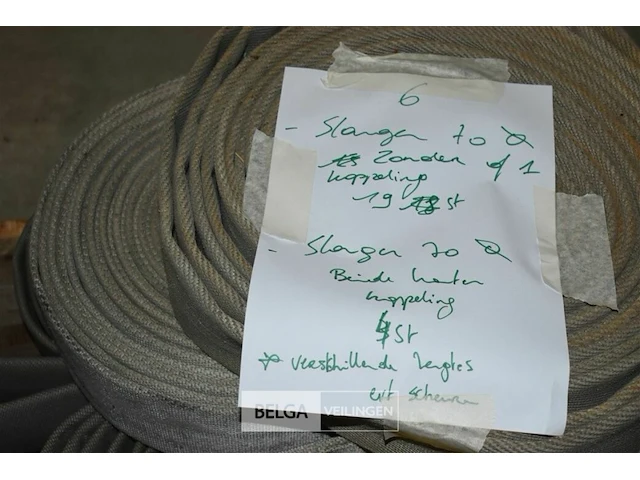 6
- Slangen 70 Ø
Zonder of 1
koppeling
19 st
- Slangen 70 Ø
Beide kanten
koppeling
4 St
* verschillende lengtes
BELGA VEILINGEN